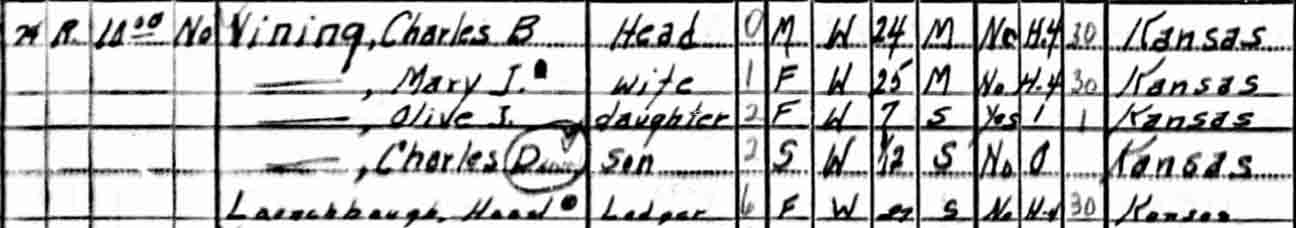 R 10⁰⁰ No Vining, Charles B Head 0 M W 24 M No H-4 30 Kansas
——, Mary J. wife 1 F W 25 M No H-4 30 Kansas
——, Olive J. daughter 2 F W 7 S Yes 1 1 Kansas
——, Charles son 2 S W 1/12 S No 0 Kansas
Lodger 6 F W S No H-4 30 Kansas